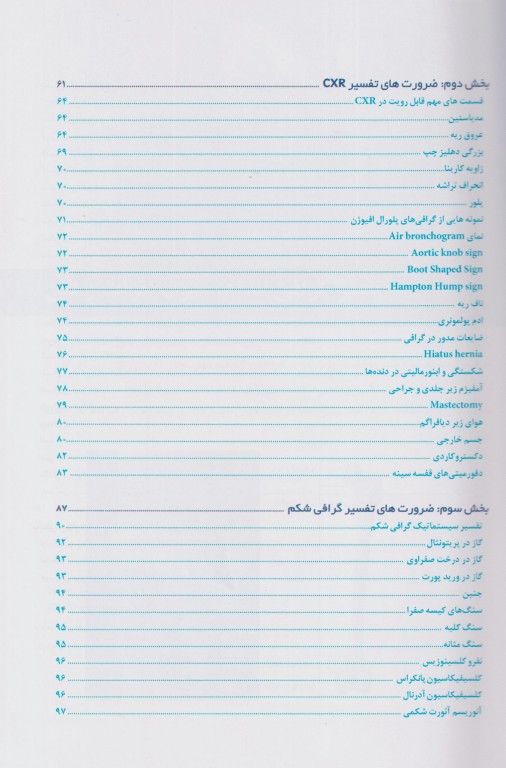 بخش دوم: ضرورت های تفسیر CXR ........ ۶۱
قسمت های مهم قابل رویت در CXR ........ ۶۴
مدیاستین ........ ۶۴
عروق ریه ........ ۶۴
بزرگی دهلیز چپ ........ ۶۹
زاویه کارینا ........ ۷۰
انحراف تراشه ........ ۷۰
پلور ........ ۷۰
نمونه هایی از گرافی‌های پلورال افیوژن ........ ۷۱
نمای Air bronchogram ........ ۷۲
Aortic knob sign ........ ۷۲
Boot Shaped Sign ........ ۷۳
Hampton Hump sign ........ ۷۳
ناف ریه ........ ۷۴
ادم پولمونری ........ ۷۴
ضایعات مدور در گرافی ........ ۷۵
Hiatus hernia ........ ۷۶
شکستگی و ابنورمالیتی در دنده‌ها ........ ۷۷
آمفیزم زیر جلدی و جراحی ........ ۷۸
Mastectomy ........ ۷۹
هوای زیر دیافراگم ........ ۸۰
جسم خارجی ........ ۸۰
دکستروکاردی ........ ۸۲
دفورمیتی‌های قفسه سینه ........ ۸۳
بخش سوم: ضرورت های تفسیر گرافی شکم ........ ۸۷
تفسیر سیستماتیک گرافی شکم ........ ۹۰
گاز در پریتونئال ........ ۹۲
گاز در درخت صفراوی ........ ۹۳
گاز در ورید پورت ........ ۹۳
جنین ........ ۹۴
سنگ‌های کیسه صفرا ........ ۹۴
سنگ کلیه ........ ۹۵
سنگ مثانه ........ ۹۵
نفرو کلسینوزیس ........ ۹۶
کلسیفیکاسیون پانکراس ........ ۹۶
کلسیفیکاسیون آدرنال ........ ۹۶
آنوریسم آئورت شکمی ........ ۹۷